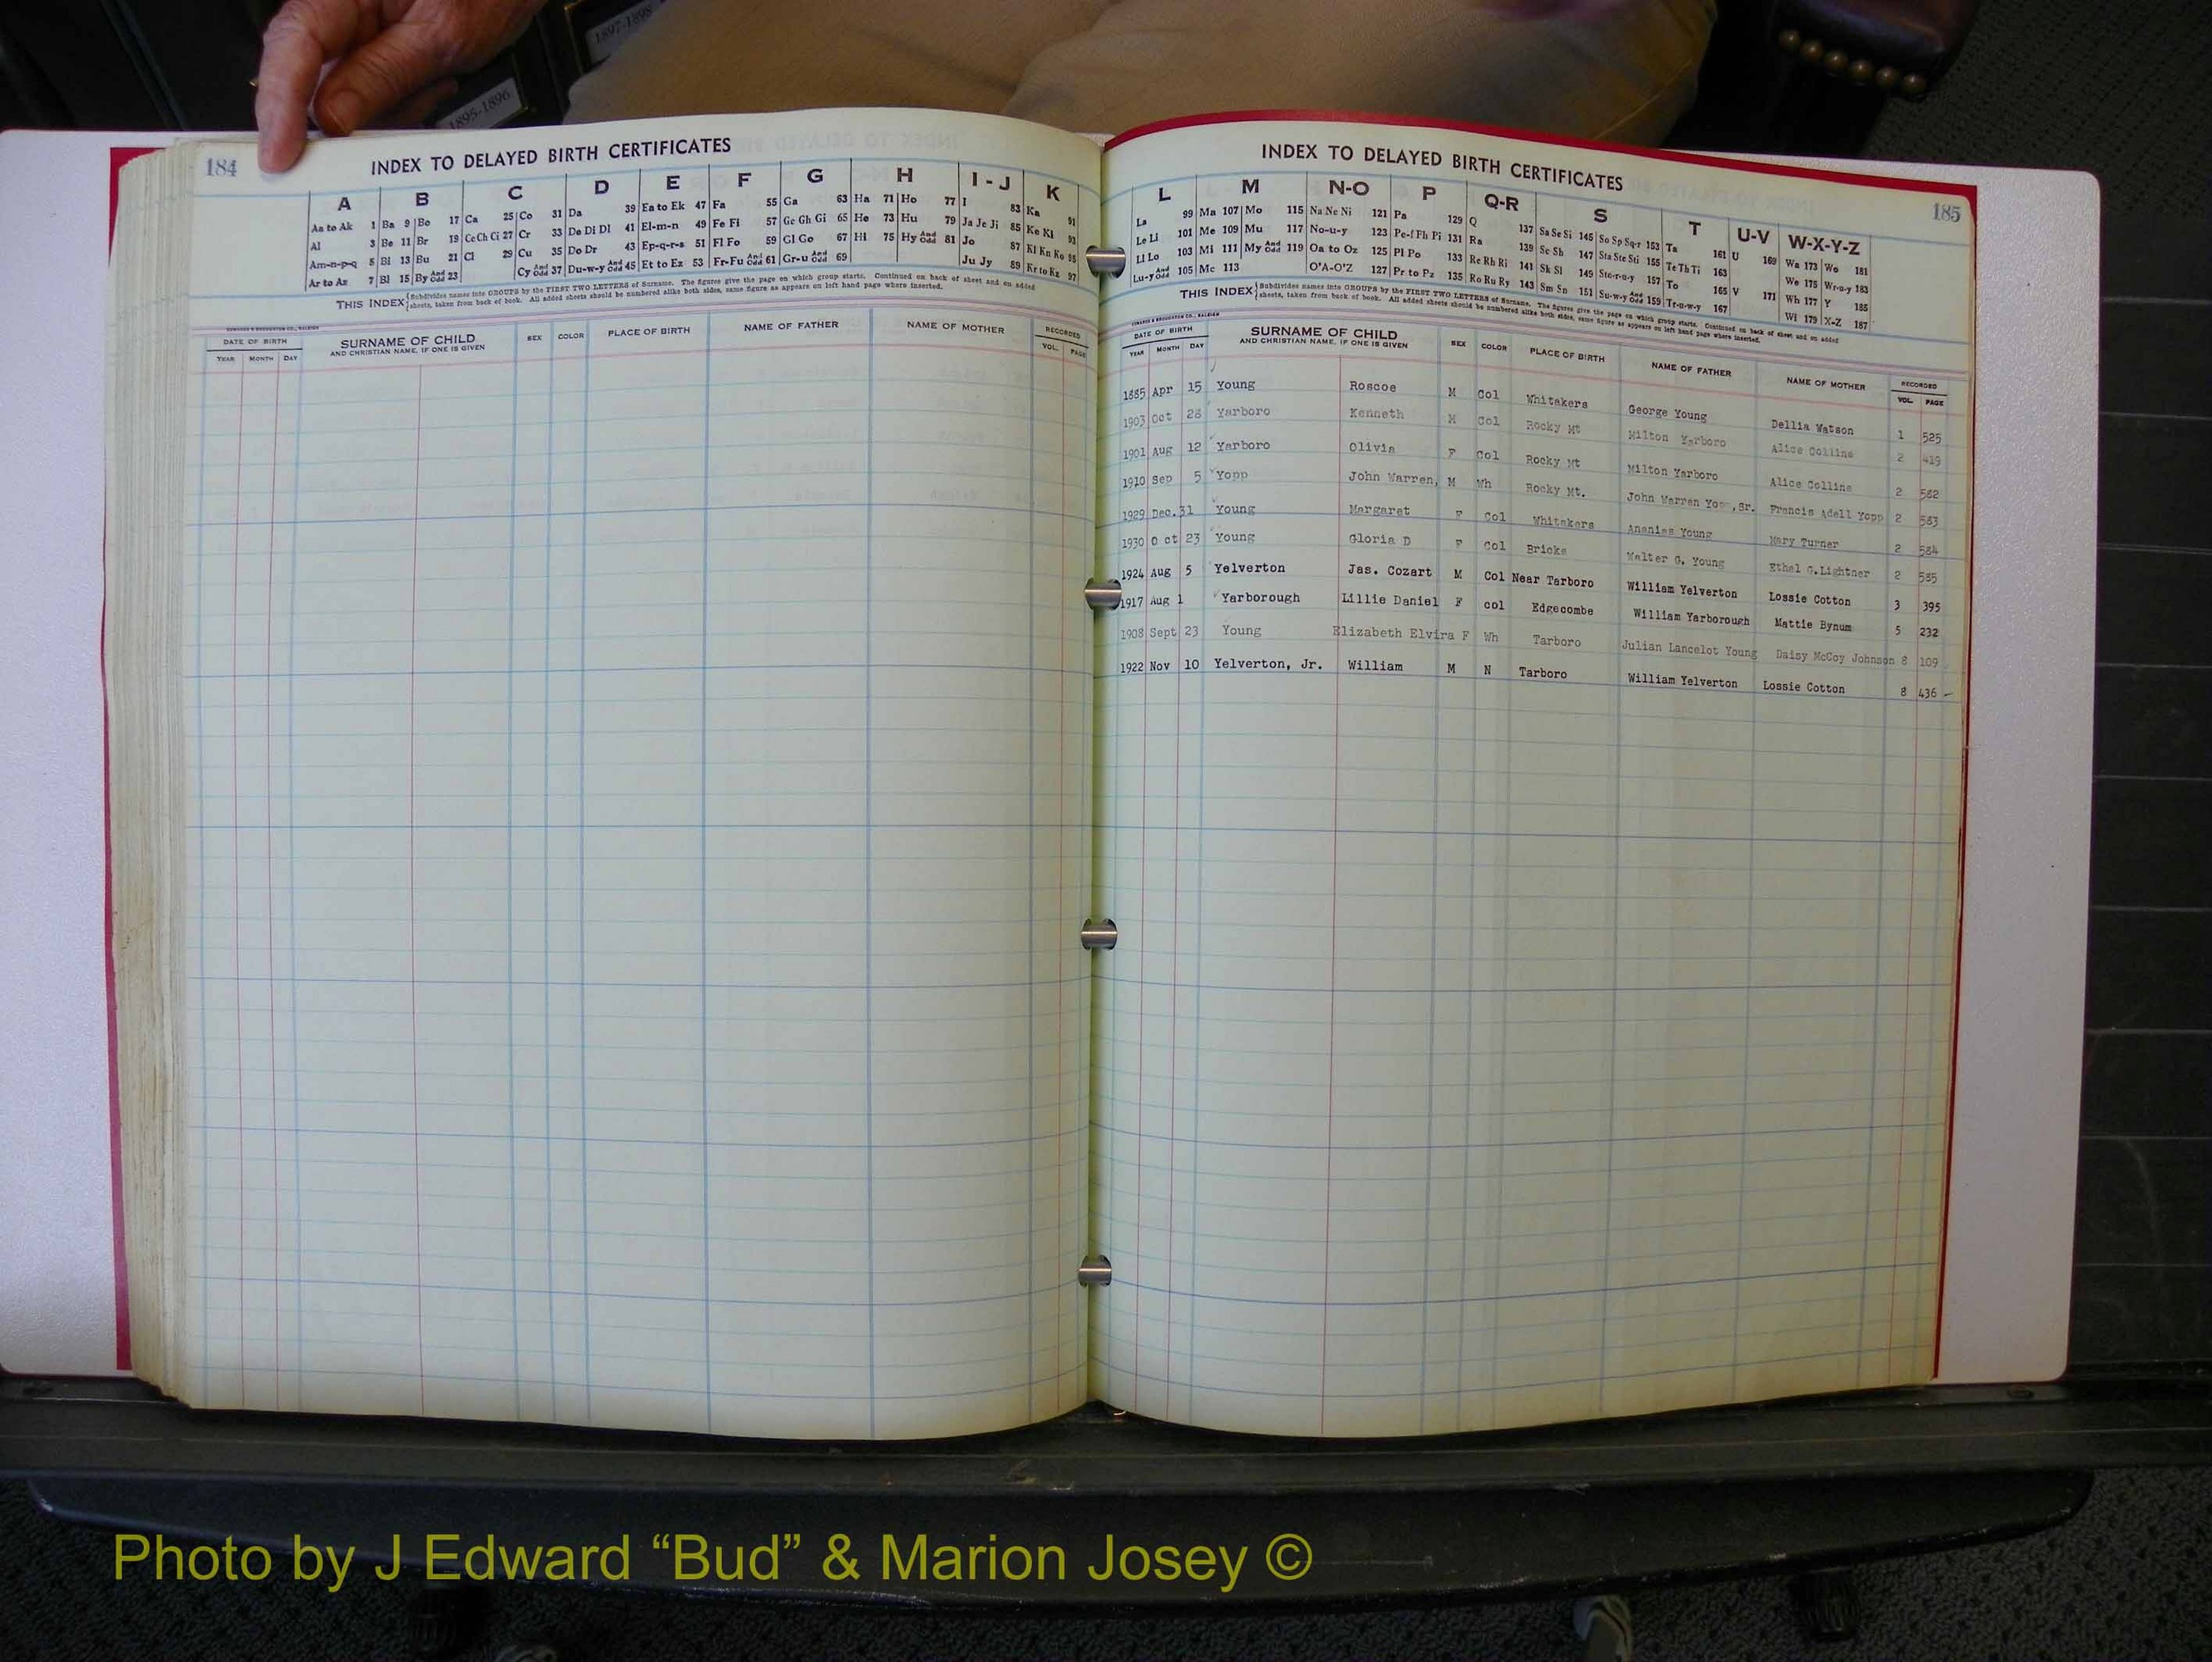 1897-1898
1895-1896
184
INDEX TO DELAYED BIRTH CERTIFICATES
A B C D E F G H I - J K
Aa to Ak 1 Ba 9 Bo 17 Ca 25 Co 31 Da 39 Ea to Ek 47 Fa 55 Ga 63 Ha 71 Ho 77 I 83 Ka 91
Al 3 Be 11 Br 19 Ce Ch Ci 27 Cr 33 De Di Dl 41 El-m-n 49 Fe Fi 57 Ge Gh Gi 65 He 73 Hu 79 Ja Je Ji 85 Ke Ki 93
Am-n-p-q 5 Bi 13 Bu 21 Cl 29 Cu 35 Do Dr 43 Ep-q-r-s 51 Fl Fo 59 Gl Go 67 Hi 75 Hy And Odd 81 Jo 87 Kl Kn Ko 95
Ar to Az 7 Bl 15 By And Odd 23 Cy And Odd 37 Du-w-y And Odd 45 Et to Ez 53 Fr-Fu And Odd 61 Gr-u And Odd 69 Ju Jy 89 Kr to Kz 97
THIS INDEX Subdivides names into GROUPS by the FIRST TWO LETTERS of Surname. The figures give the page on which group starts. Continued on back of sheet and on added
sheets, taken from back of book. All added sheets should be numbered alike both sides, same figure as appears on left hand page where inserted.
DATE OF BIRTH SURNAME OF CHILD SEX COLOR PLACE OF BIRTH NAME OF FATHER NAME OF MOTHER RECORDED
YEAR MONTH DAY AND CHRISTIAN NAME, IF ONE IS GIVEN VOL. PAGE
INDEX TO DELAYED BIRTH CERTIFICATES
185
L M N-O P Q-R S T U-V W-X-Y-Z
La 99 Ma 107 Mo 115 Na Ne Ni 121 Pa 129 Q 137 Sa Se Si 145 So Sp Sq-r 153 Ta 161 U 169 Wa 173 Wo 181
Le Li 101 Me 109 Mu 117 No-u-y 123 Pe-f Ph Pi 131 Ra 139 Sc Sh 147 Sta Ste Sti 155 Te Th Ti 163 We 175 Wr-u-y 183
Ll Lo 103 Mi 111 My And Odd 119 Oa to Oz 125 Pl Po 133 Re Rh Ri 141 Sk Sl 149 Sto-r-u-y 157 To 165 V 171 Wh 177 Y 185
Lu-y And Odd 105 Mc 113 O'A-O'Z 127 Pr to Pz 135 Ro Ru Ry 143 Sm Sn 151 Su-w-y And Odd 159 Tr-u-w-y 167 Wi 179 X-Z 187
THIS INDEX Subdivides names into GROUPS by the FIRST TWO LETTERS of Surname. The figures give the page on which group starts. Continued on back of sheet and on added
sheets, taken from back of book. All added sheets should be numbered alike both sides, same figure as appears on left hand page where inserted.
DATE OF BIRTH SURNAME OF CHILD SEX COLOR PLACE OF BIRTH NAME OF FATHER NAME OF MOTHER RECORDED
YEAR MONTH DAY AND CHRISTIAN NAME, IF ONE IS GIVEN VOL. PAGE
1885 Apr 15 Young Roscoe M Col Whitakers George Young Dellia Watson 1 525
1903 Oct 28 Yarboro Kenneth M Col Rocky Mt Milton Yarboro Alice Collins 2 419
1901 Aug 12 Yarboro Olivia F Col Rocky Mt Milton Yarboro Alice Colline 2 582
1910 Sep 5 Yopp John Warren, M Wh Rocky Mt. John Warren Yopp, Sr. Francis Adell Yopp 2 583
1929 Dec. 31 Young Margaret F Col Whitakers Ananias Young Mary Turner 2 584
1930 O ct 23 Young Gloria D F Col Bricks Walter G. Young Ethel G.Lightner 2 585
1924 Aug 5 Yelverton Jas. Cozart M Col Near Tarboro William Yelverton Lossie Cotton 3 395
1917 Aug 1 Yarborough Lillie Daniel F col Edgecombe William Yarborough Mattie Bynum 5 232
1908 Sept 23 Young Elizabeth Elvira F Wh Tarboro Julian Lancelot Young Daisy McCoy Johnson 8 109
1922 Nov 10 Yelverton, Jr. William M N Tarboro William Yelverton Lossie Cotton 8 436
Photo by J Edward “Bud” & Marion Josey ©